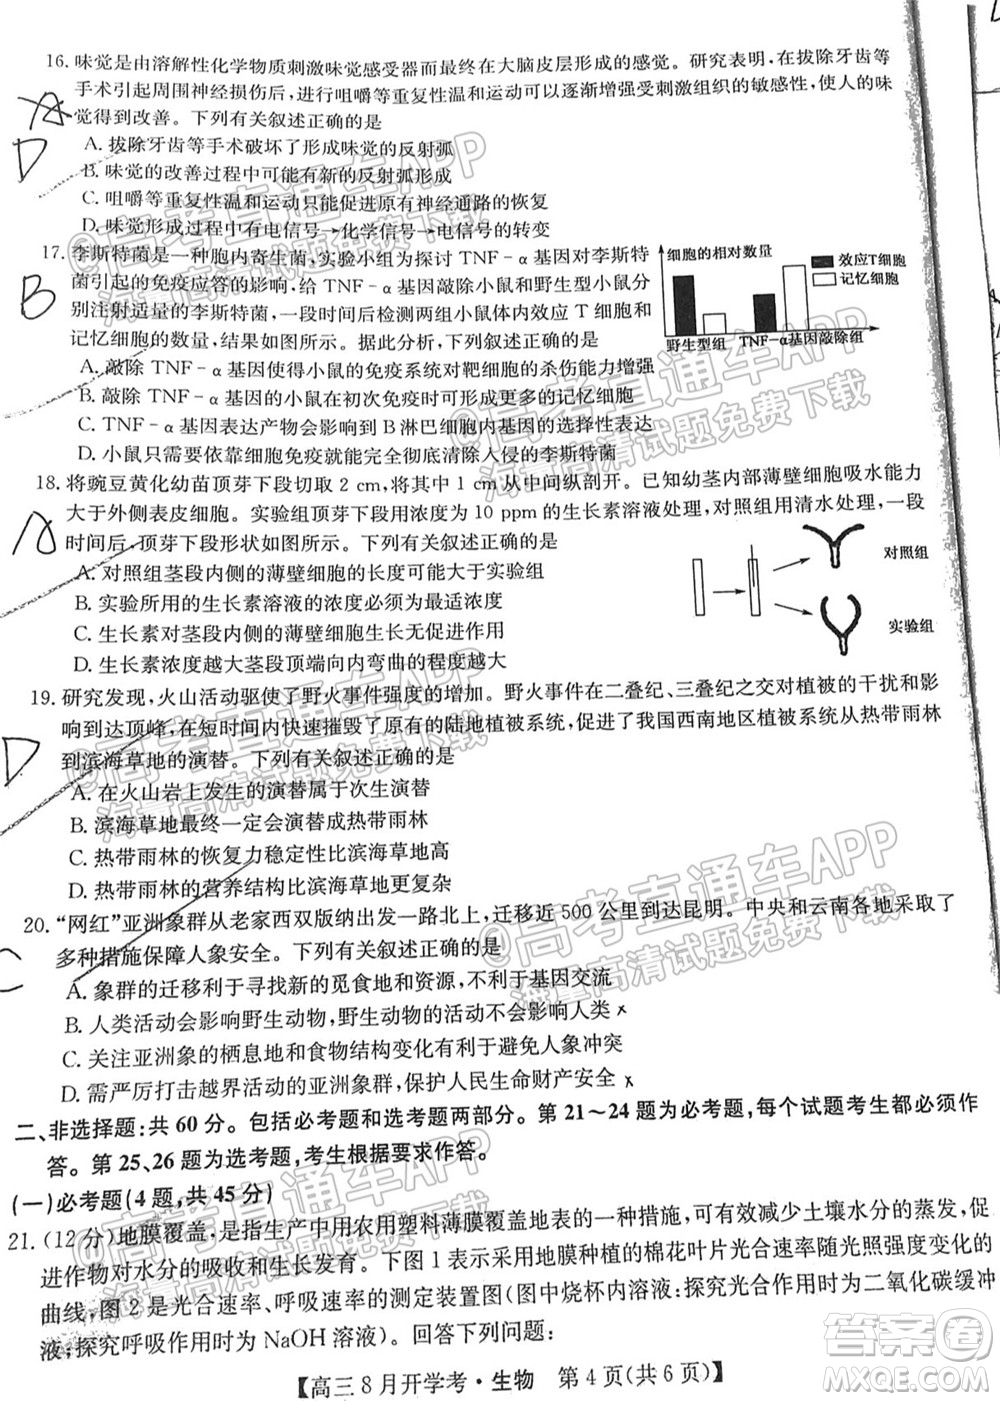 16. 味觉是由溶解性化学物质刺激味觉感受器而最终在大脑皮层形成的感觉。研究表明,在拔除牙齿等
手术引起周围神经损伤后,进行咀嚼等重复性温和运动可以逐渐增强受刺激组织的敏感性,使人的味
觉得到改善。下列有关叙述正确的是
A. 拔除牙齿等手术破坏了形成味觉的反射弧
B. 味觉的改善过程中可能有新的反射弧形成
C. 咀嚼等重复性温和运动促进了原有神经通路的恢复
D. 味觉形成过程中有电信号→化学信号→电信号的转变
D
17. 李斯特菌是一种胞内寄生菌,实验小组为探讨 TNF-α基因对李斯特
菌引起的免疫应答的影响,给 TNF-α基因敲除小鼠和野生型小鼠分
别注射适量的李斯特菌,一段时间后检测两组小鼠体内效应 T 细胞和
记忆细胞的数量,结果如图所示。据此分析,下列叙述正确的是
A. 敲除 TNF-α基因使得小鼠的免疫系统对靶细胞的杀伤性能力
B. 敲除 TNF-α基因的小鼠在初次免疫时可形成更多的记忆细胞
C. TNF-α基因表达产物会影响到 B 淋巴细胞中基因的选择性表达
D. 小鼠只需要依靠细胞免疫过程就能够彻底消灭侵入机体的李斯特菌
B
细胞的相对数量
效应T细胞
记忆细胞
野生型组 TNF-α基因敲除组
18. 将豌豆黄化幼苗顶芽下段切取 2 cm,将其中 1 cm 从中间纵剖开。已知幼茎内部薄壁细胞吸水能力
大于外侧表皮细胞。实验组顶芽下段用浓度为 10 ppm 的生长素溶液处理,对照组用清水处理,一段
时间后,顶芽下段形状如图所示。下列有关叙述正确的是
A. 对照组茎段内侧的薄壁细胞长度可能大于实验组
B. 实验所用的生长素溶液的浓度必须为最适浓度
C. 生长素对茎段内侧的薄壁细胞生长无促进作用
D. 生长素浓度越大茎段顶端向内弯曲的程度越大
A
对照组
实验组
19. 研究发现,火山活动驱使了野火事件强度的增加。野火事件在二叠纪、三叠纪之交对植被的干扰和影
响到达顶峰,在短时间内快速摧毁了原有的陆地植被系统,促进了我国西南地区植被系统从热带雨林
到滨海草地的演替。下列有关叙述正确的是
A. 在火山岩上发生的演替属于次生演替
B. 滨海草地最终一定会演替成热带雨林
C. 热带雨林的恢复力稳定性比滨海草地高
D. 热带雨林的营养结构比滨海草地复杂
D
20. “网红”亚洲象群从老家西双版纳出发一路北上,迁移近 500 公里到达昆明。中央和云南各地采取了
多种措施保障人象安全。下列有关叙述正确的是
A. 象群的迁移有利于寻找新的觅食地和资源,不利于基因交流
B. 人类活动会影响野生动物,野生动物的活动不会影响人类
C. 关注亚洲象的栖息地和食物结构变化有利于避免人象冲突
D. 需严厉打击越界活动的亚洲象群,保护人民生命财产安全
二、非选择题:共 60 分。包括必考题和选考题两部分。第 21～24 题为必考题,每个试题考生都必须作
答。第 25、26 题为选考题,考生根据要求作答。
(一)必考题(4 题,共 45 分)
21. (12 分)地膜覆盖,是指生产中用农用塑料薄膜覆盖地表的一种措施,可有效减少土壤水分的蒸发,促
进作物对水分的吸收和生长发育。下图 1 表示采用地膜种植的棉花叶片光合速率随光照强度变化的
曲线,图 2 是光合速率、呼吸速率的测定装置图(图中烧杯内溶液:探究光合作用时为二氧化碳缓冲
液;探究呼吸作用时为 NaOH 溶液)。回答下列问题:
【高三 8 月开学考·生物 第 4 页(共 6 页)】
@高考直通车APP
海量高清试题免费下载
@高考直通车APP
海量高清试题免费下载
@高考直通车APP
海量高清试题免费下载
@高考直通车APP
海量高清试题免费下载
@高考直通车APP
海量高清试题免费下载
答案圈
MXQE.COM